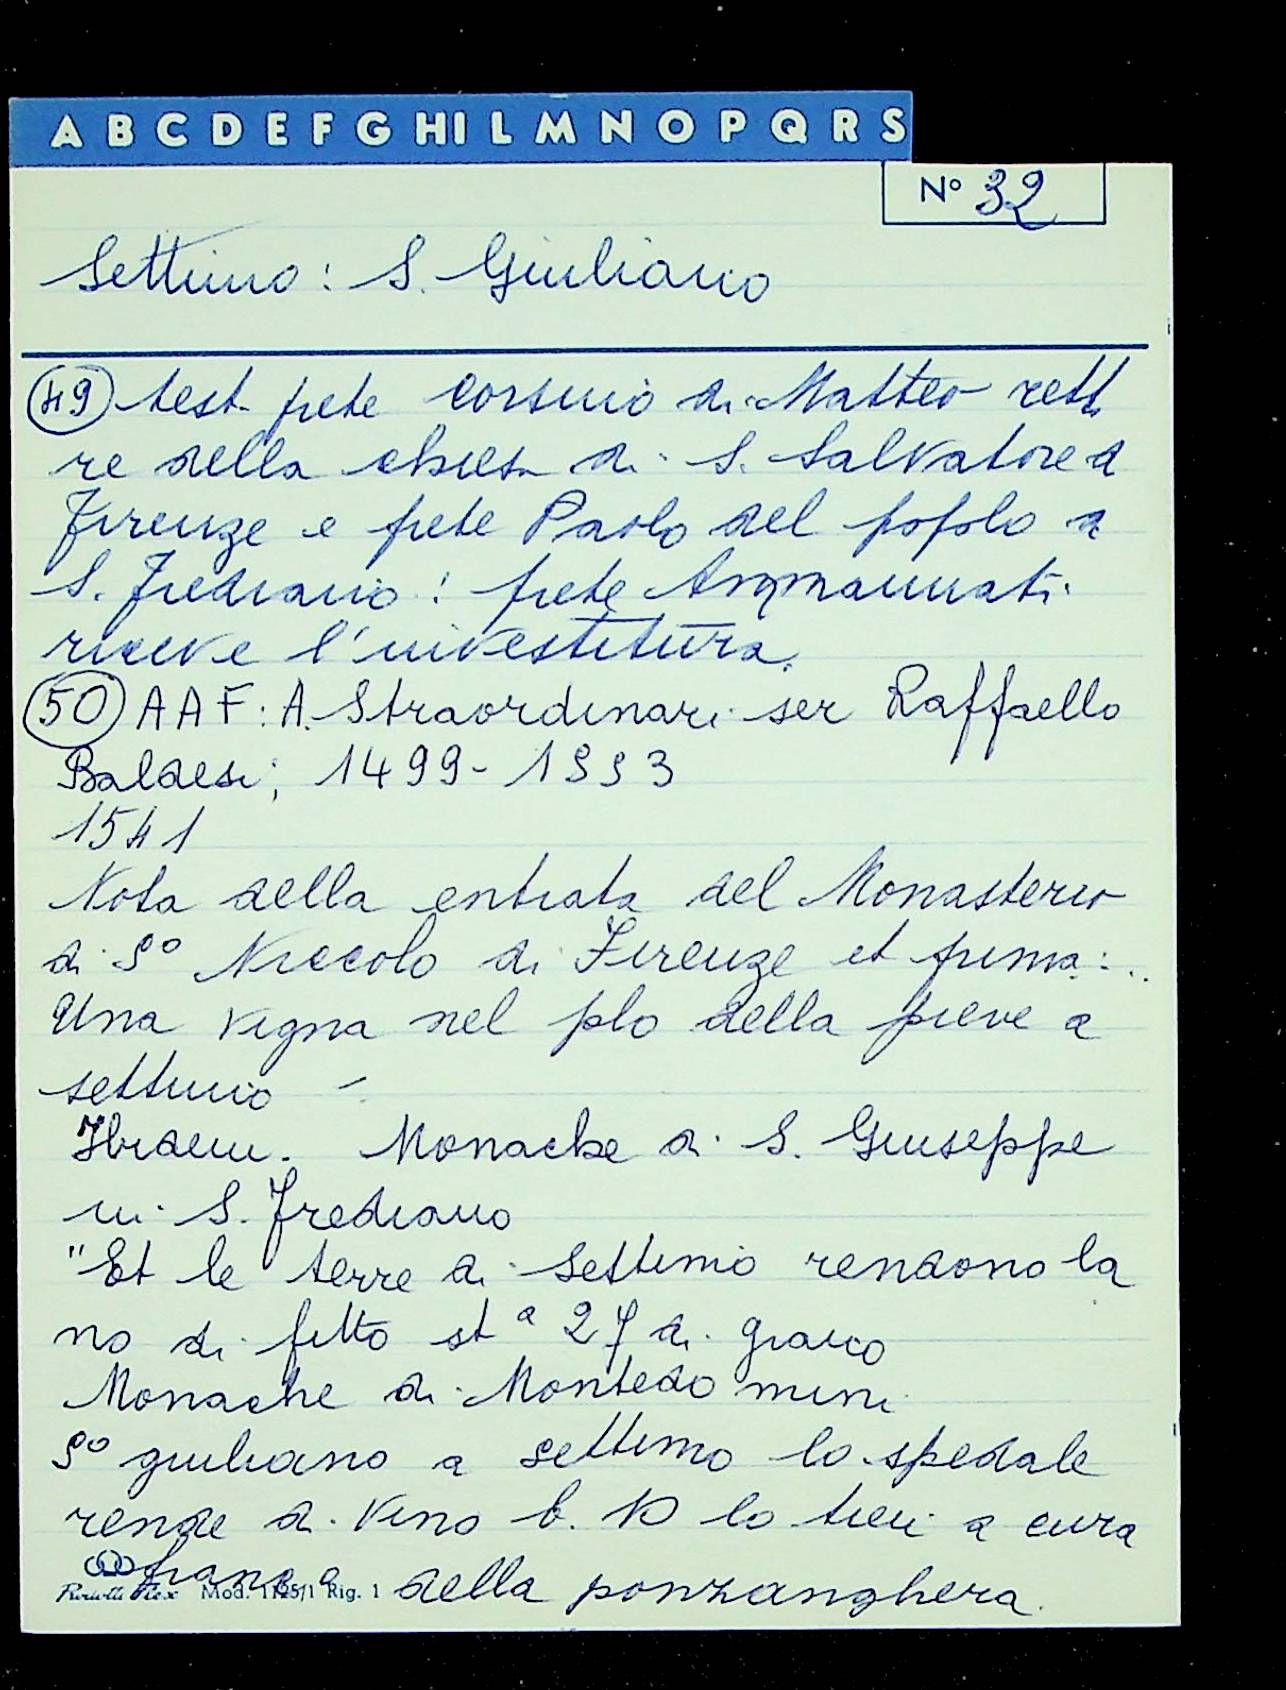 A B C D E F G H I L M N O P Q R S
N° 32
Settimo: S. Giuliano
49 test prete Corsino di Matteo retto
re della chiesa di S. Salvatore a
Firenze e prete Paolo del popolo a
S. Frediano: prete Ammannati
riceve l'investitura.
50 AAF: A. Straordinari ser Raffaello
Baldesi; 1499-1553
1541
Nota della entrata del Monasterio
di S° Niccolo di Firenze et prima:..
Una vigna nel plo della pieve a
settimo -
Ibidem. Monache di S. Giuseppe
in S. Frediano
"Et le terre di Settimo rendono la
no di fitto st a 27 di grano
Monache di Montedomini
S° giuliano a settimo lo spedale
rende di vino b. 10 lo tien a cura
della ponzanghera.
Mod. 1125/1 Rig. 1